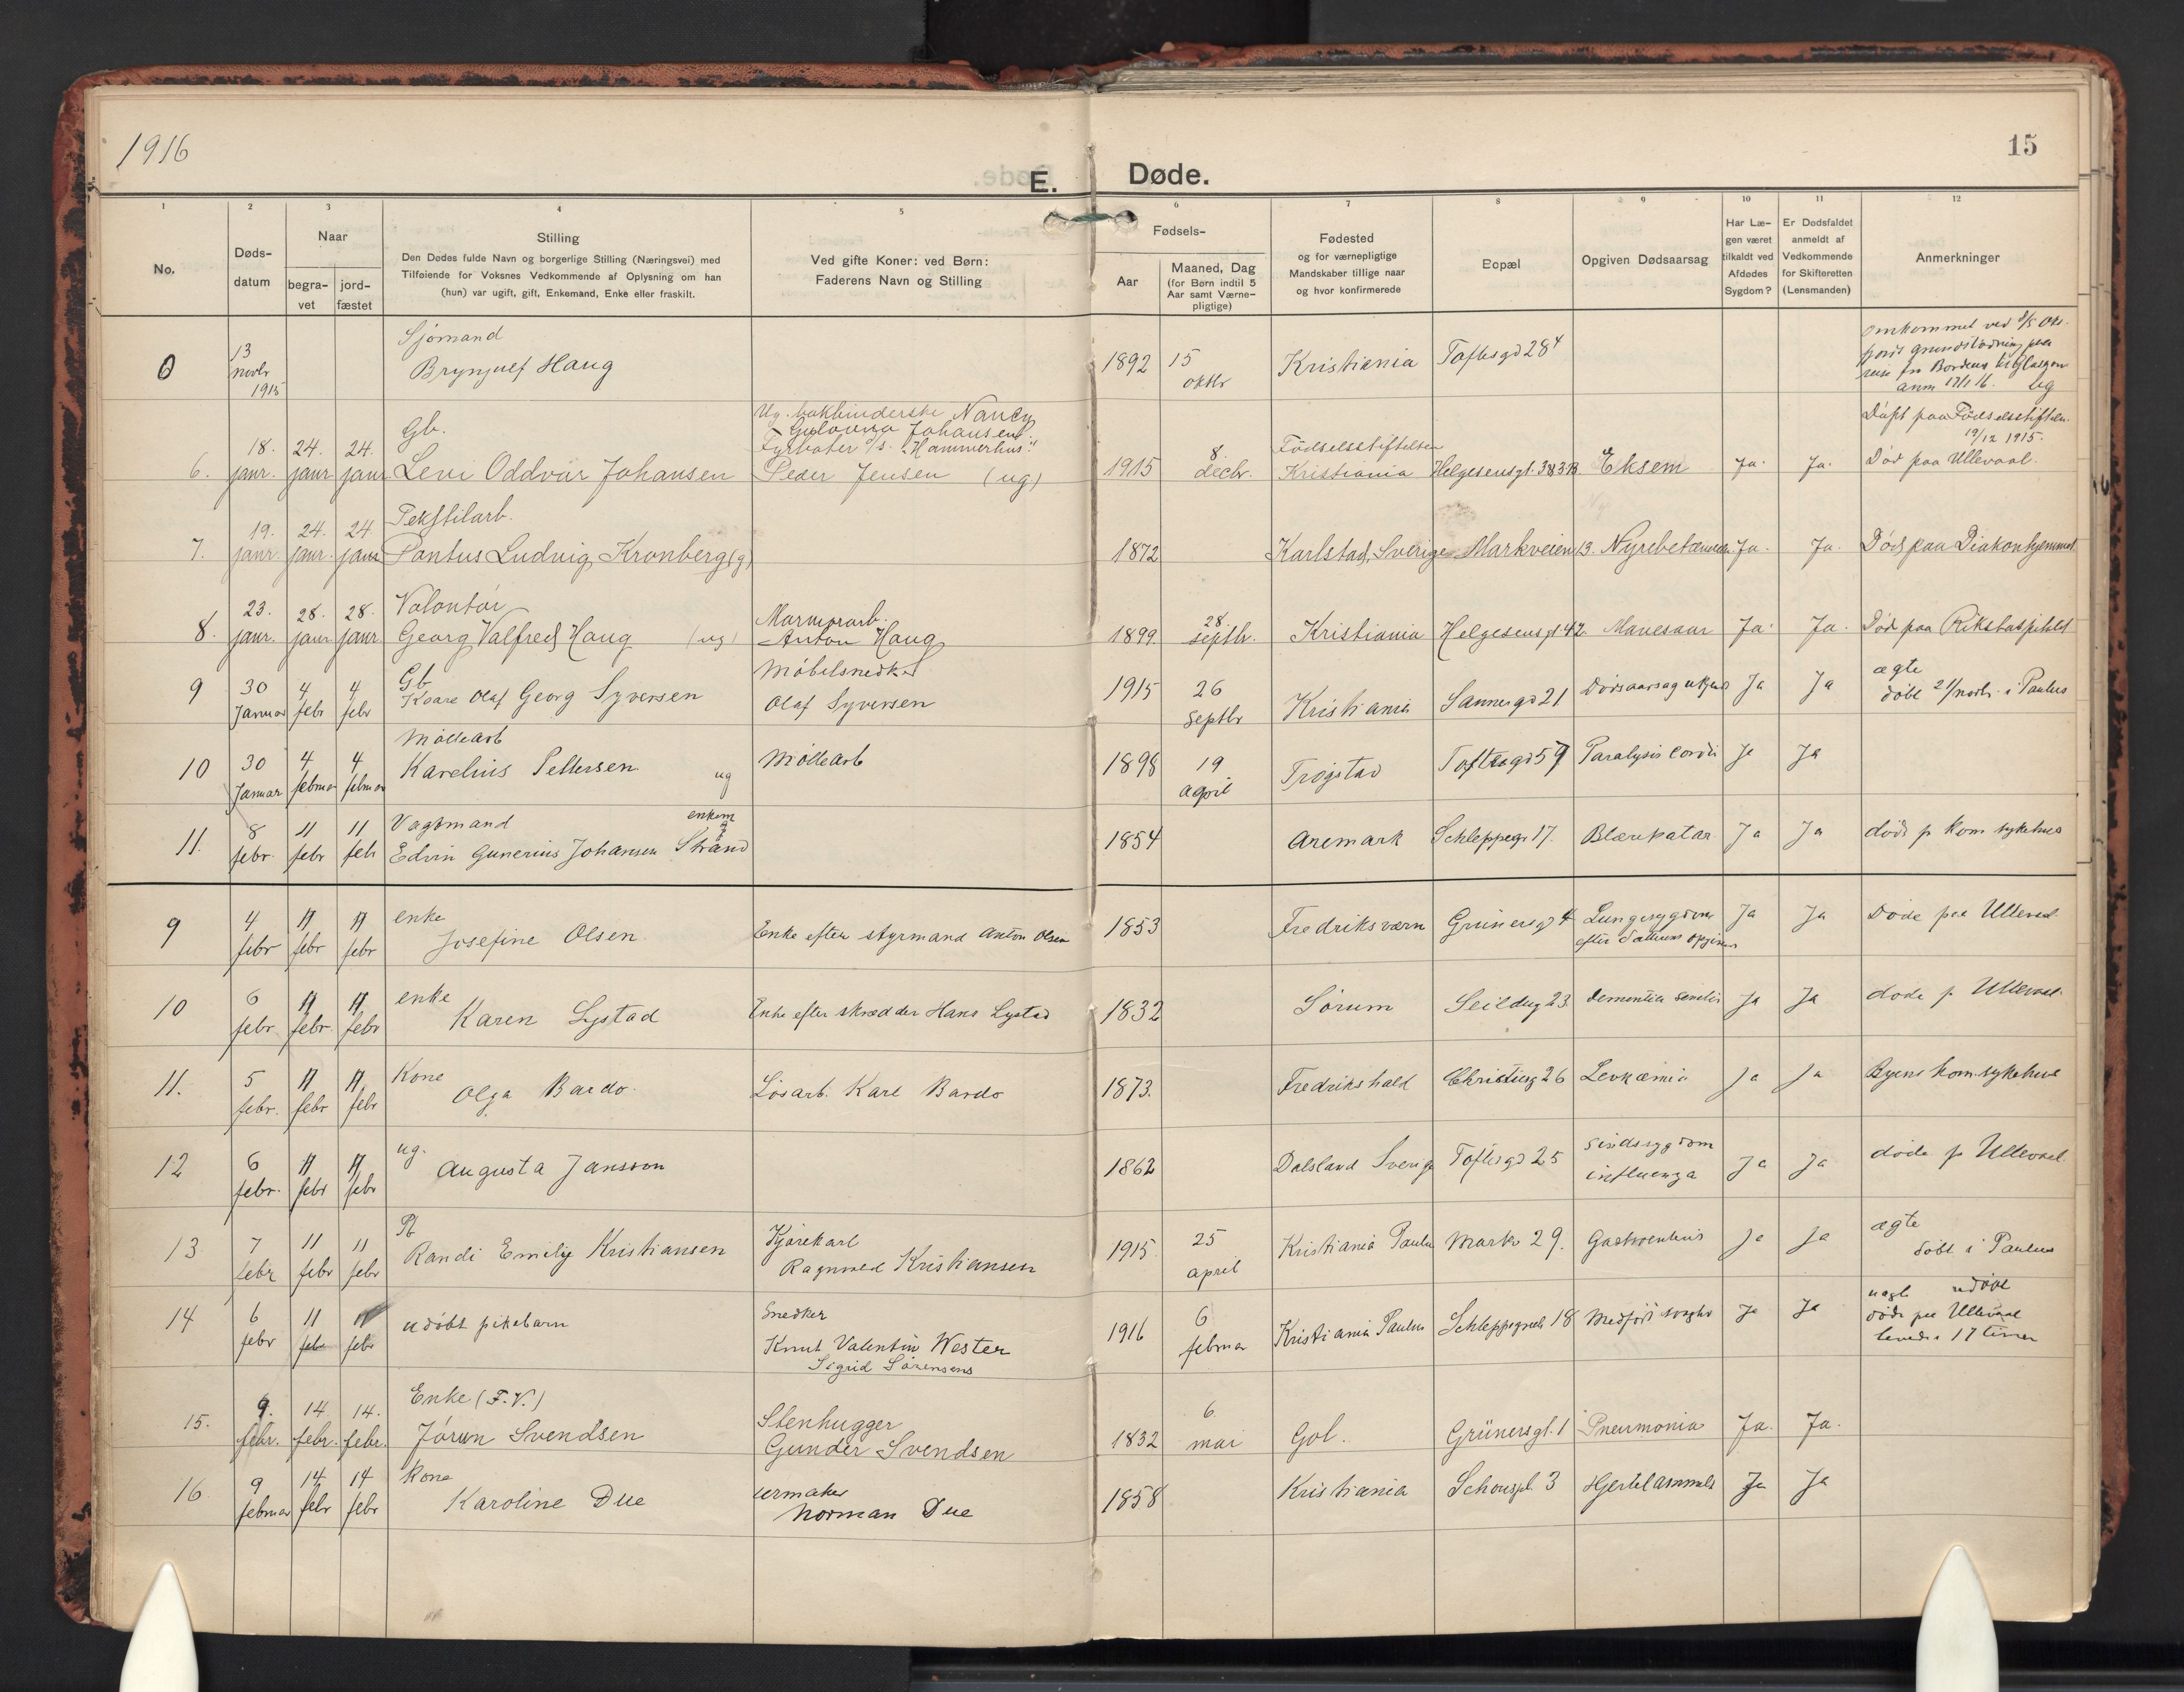 1916
15
E. Døde.
1 2 3 4 5 6 7 8 9 10 11 12
No.
Døds-
datum
Naar
begra-
vet
jord-
fæstet
Stilling
Den Dødes fulde Navn og borgerlige Stilling (Næringsvei) med
Tilføiende for Voksnes Vedkommende af Oplysning om han
(hun) var ugift, gift, Enkemand, Enke eller fraskilt.
Ved gifte Koner: ved Børn:
Faderens Navn og Stilling
Fødsels-
Aar
Maaned, Dag
(for Børn indtil 5
Aar samt Værne-
pligtige)
Fødested
og for værnepligtige
Mandskaber tillige naar
og hvor konfirmerede
Bopæl
Opgiven Dødsaarsag
Har Læ-
gen været
tilkaldt ved
Afdødes
Sygdom?
Er Dødsfaldet
anmeldt af
Vedkommende
for Skifteretten
(Lensmanden)
Anmerkninger
0
13
novbr
1915
Sjømand
Brynjulf Haug
1892
15
oktbr
Kristiania
Toftesgd 28
omkommet ved
grundstødning paa
reise fra Bordeux til Glasgow
anm 17/1 16.
6.
18. janr.
24. janr
24. janr
Gb.
Levi Oddvar Johansen
Ug. bokbinderske Nancy
Gulovna Johansen
Fyrbøter d/s. "Hammerhus"
Peder Jensen (ug)
1915
8. decbr.
Fødselsstiftelsen
Kristiania
Helgesensgt. 38 3B
Eksem
Ja.
Ja.
Døpt paa Fødselsstiftelsen
19/12 1915.
Død paa Ullevaal.
7.
19. janr.
24. janr.
24 janr
Tekstilarb.
Pontus Ludvig Kronberg (g)
1872
Karlstad, Sverige
Markveien 13.
Ja.
Ja.
Død paa Diakonhjemmet
8.
23. janr.
28. janr
28. janr
Volontør
Georg Valfred Haug (ug)
Marmorarb.
Anton Haug
1899.
28. septbr.
Kristiania
Helgesensgt 42.
Mavesaar
Ja.
Ja.
Død paa Rikshospitalet
9
30 Januar
4 febr
4 febr
Gb
Kaare Olaf Georg Syversen
Møbelsnedker
Olaf Syversen
1915
26 septbr
Kristiania
Sannergd 21
Dødsaarsag ukjend
Ja
Ja
ægte
døbt 21/novbr. i Paulus
10
30 Januar
4 februar
4 februar
Møllearb
Karelius Pettersen ug
Møllearb
1898
19 april
Trøgstad
Toftesgd 59
Paralysis cordis
Ja
Ja
11.
8 febr.
11 febr
11 feb
Vagtmand
enkem
Edvin Gunerius Johansen Strand
1854
Aremark
Schleppegr 17.
Blærekatar.
Ja
Ja
døde p kom sykehus
9
4 febr
11 febr
11 febr
enke
Josefine Olsen
Enke efter styrmand Anton Olsen
1853
Fredriksværn
Grünersgd 4
Lungesygdom
efter datterens opgivende
Ja
Ja
Døde paa Ullevaal.
10
6 febr.
11 febr.
11 febr
enke
Karen Lystad
Enke efter skrædder Hans Lystad
1832
Sørum
Seildug 23
dementia senilis
Ja
Ja
døde p. Ullevaal.
11.
5 febr.
11 febr
11. febr
Kone
Olga Bardo.
Løsarb. Karl Bardo
1873.
Fredrikshald
Christiesg 26
Levkæmia
Ja
Ja
Byens kom. sykehus
12
6 febr.
11 febr
11. febr
ug.
Augusta Jansson
1862
Dalsland Sverige
Toftesgd 25
Sindssygdom
influenza
Ja
Ja
døde p. Ullevaal.
13
7 febr
11 febr
11 febr
Pb
Randi Emilie Kristiansen
Kjørekarl
Ragnvald Kristiansen
1915.
25 april
Kristiania Paulus
Markv 29.
Gastroenteris
Ja
Ja
ægte
døbt i Paulus
14
6 febr
11 feb
11 feb
udøbt pikebarn
Snedker
Knut Valentin Wester
Sigrid Sørensens
1916
6 februar
Kristiania Paulus
Schleppegrels 18
Medfødt svaghet
Ja
Ja
uægte udøbt
døde paa Ullevaal
levede 17 timer
15.
9. febr.
14 febr.
14. febr.
Enke (F.V.)
Jørun Svendsen
Stenhugger
Gunder Svendsen
1832
6. mai
Gol.
Grünersgt. 1
Pneumonia
Ja.
Ja.
16.
9 februar
14 febr
14 febr
Kone
Karoline Due
urmaker
Norman Due
1858
Kristiania
Schouspl. 3
Hjertelammelse
Ja
Ja